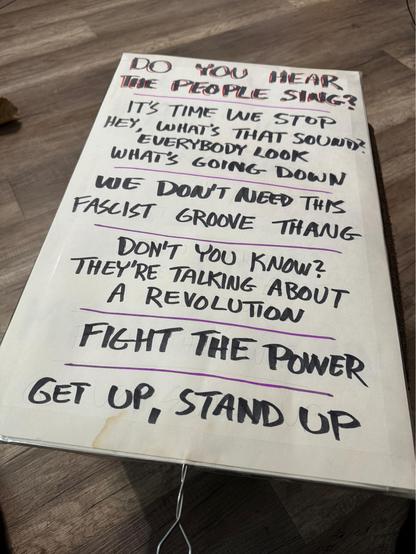 DO YOU HEAR
THE PEOPLE SING?
IT'S TIME WE STOP
HEY, WHAT'S THAT SOUND?
EVERYBODY LOOK
WHAT'S GOING DOWN
WE DON'T NEED THIS
FASCIST GROOVE THANG
DON'T YOU KNOW?
THEY'RE TALKING ABOUT
A REVOLUTION
FIGHT THE POWER
GET UP, STAND UP